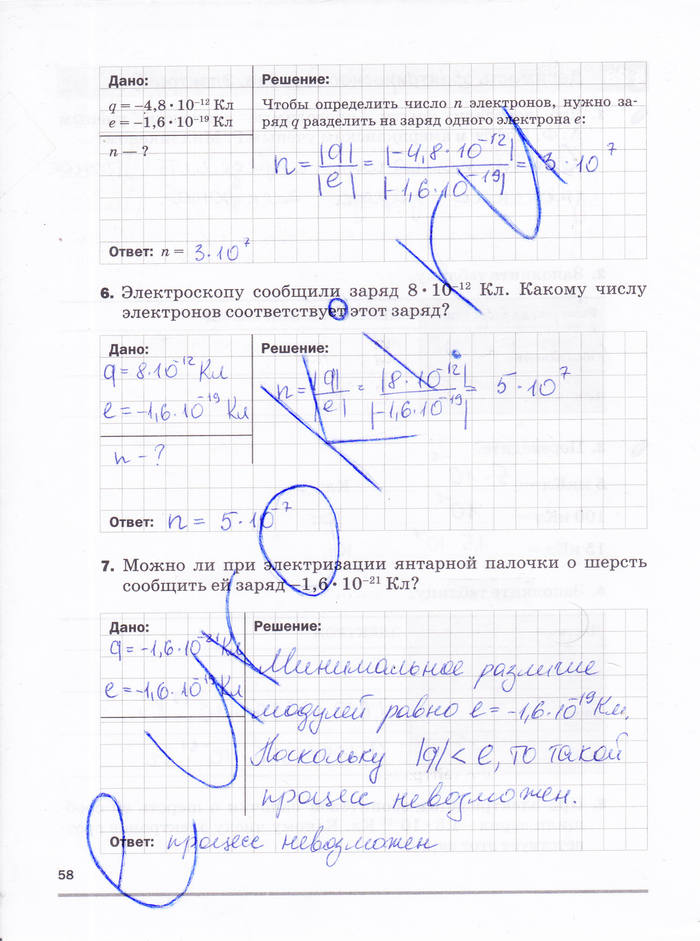 Дано:
Решение:
q = –4,8 • 10⁻¹² Кл
e = –1,6 • 10⁻¹⁹ Кл
n — ?
Чтобы определить число n электронов, нужно за-
ряд q разделить на заряд одного электрона e:
n = |q| / |e| = |-4,8 · 10⁻¹²| / |-1,6 · 10⁻¹⁹| = 3 · 10⁷
Ответ: n = 3 · 10⁷
6. Электроскопу сообщили заряд 8 • 10⁻¹² Кл. Какому числу
электронов соответствует этот заряд?
Дано:
Решение:
q = 8·10⁻¹² Кл
e = -1,6·10⁻¹⁹ Кл
n - ?
n = |q| / |e| = |8 · 10⁻¹²| / |-1,6 · 10⁻¹⁹| = 5 · 10⁷
Ответ: n = 5 · 10⁻⁷
7. Можно ли при электризации янтарной палочки о шерсть
сообщить ей заряд –1,6 • 10⁻²¹ Кл?
Дано:
Решение:
q = -1,6·10⁻²¹ Кл
e = -1,6·10⁻¹⁹ Кл
Минимальное различие
модулей равно e = -1,6·10⁻¹⁹ Кл.
Поскольку |q| < e, то такой
процесс невозможен.
Ответ: процесс невозможен
58